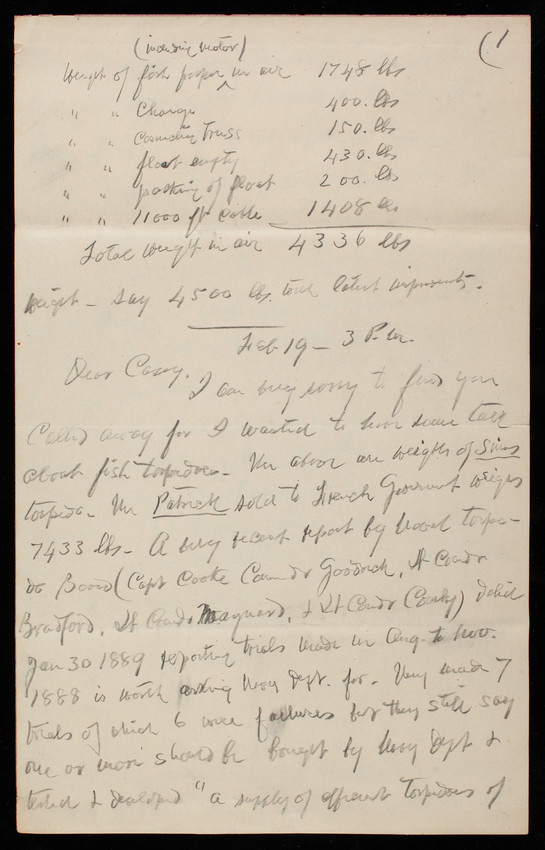 (1
(including motor)
Weight of fish proper ^ in air 1748 lbs
" " Charge 400. lbs
" " Connecting truss 150. lbs
" " float empty 430. lbs
" " packing of float 200. lbs
" " 11000 ft cable 1408 lbs
Total weight in air 4336 lbs
Weight - say 4500 lbs. with latest improvements.
Feb 19 - 3 P.M.
Dear Casey.
I am very sorry to find you
called away for I wanted to have some talk
about fish torpedoes. The above are weights of Sims
torpedo. The Patrick sold to French Government weighs
7433 lbs - A very recent report by Naval Torpe-
do Board (Capt Cooke Comdr Goodrich, Lt Comdr
Bradford, Lt Comdr Maynard, & Lt Comdr Couly) dated
Jan 30 1889 reporting trials made in Aug. to Nov.
1888 is worth asking Navy Dept. for. They made 7
trials of which 6 were failures but they still say
one or more should be bought by Navy Dept &
tested & developed "a supply of efficient torpedoes of